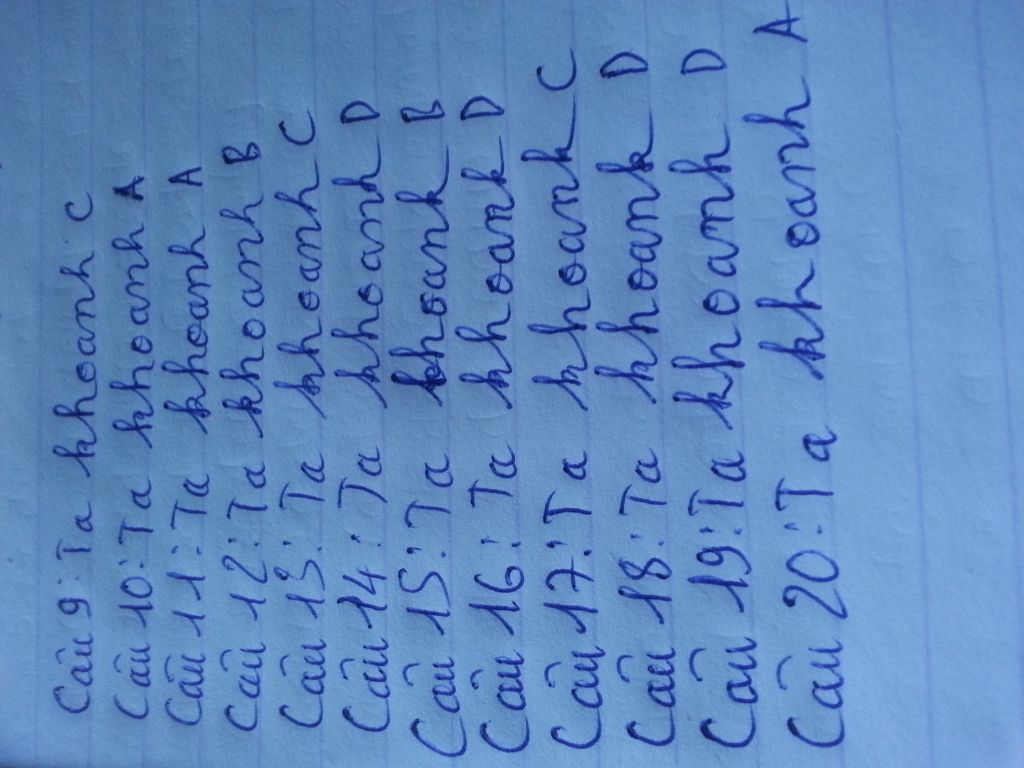 Câu 9: Ta khoanh C
Câu 10: Ta khoanh A
Câu 11: Ta khoanh A
Câu 12: Ta khoanh B
Câu 13: Ta khoanh C
Câu 14: Ta khoanh D
Câu 15: Ta khoanh B
Câu 16: Ta khoanh D
Câu 17: Ta khoanh C
Câu 18: Ta khoanh D
Câu 19: Ta khoanh D
Câu 20: Ta khoanh A